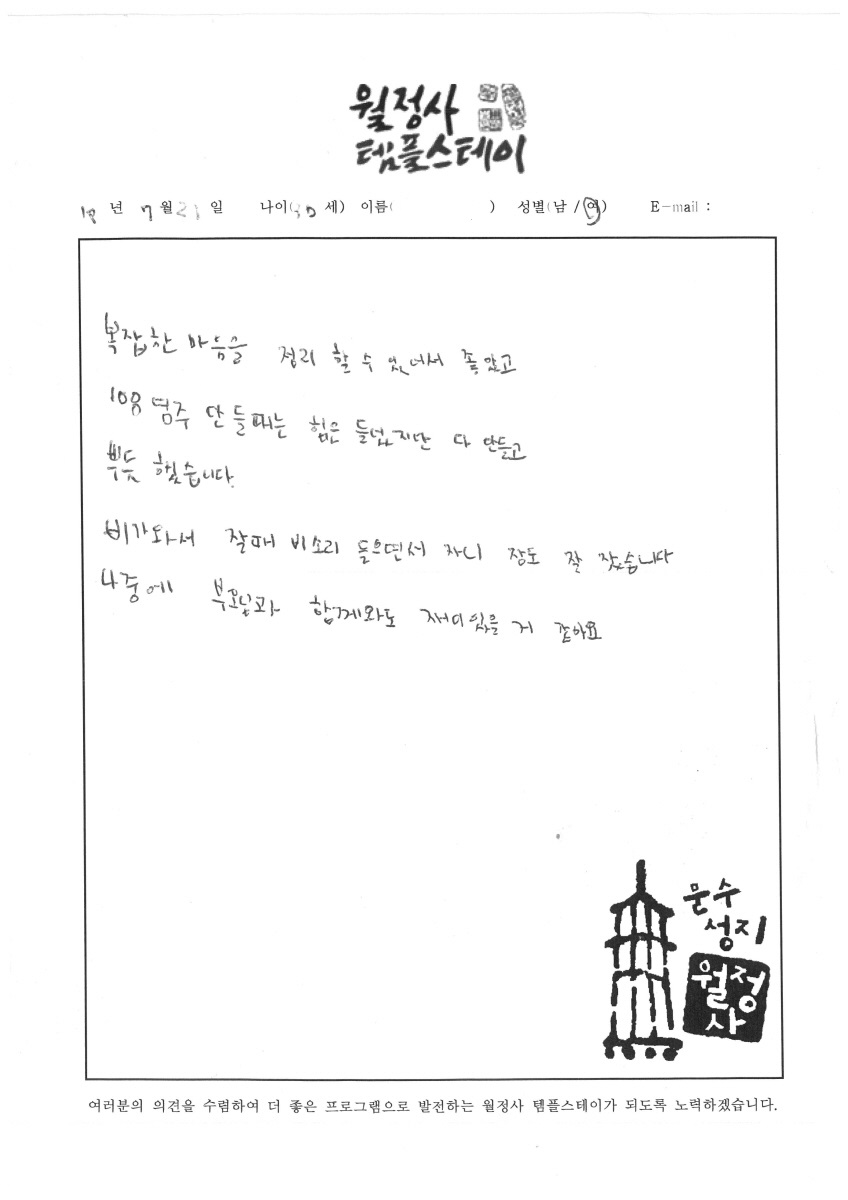 월정사
템플스테이
18 년 7 월 21 일 나이(30 세) 이름( ) 성별(남 / 여) E-mail :
복잡한 마음을 정리 할 수 있어서 좋았고
108 염주 만들때는 힘은 들었지만 다 만들고
뿌듯 했습니다.
비가와서 잘때 비소리 들으면서 자니 잠도 잘 잤습니다
나중에 부모님과 함께와도 재미있을 거 같아요
문수
성지
월정
사
여러분의 의견을 수렴하여 더 좋은 프로그램으로 발전하는 월정사 템플스테이가 되도록 노력하겠습니다.